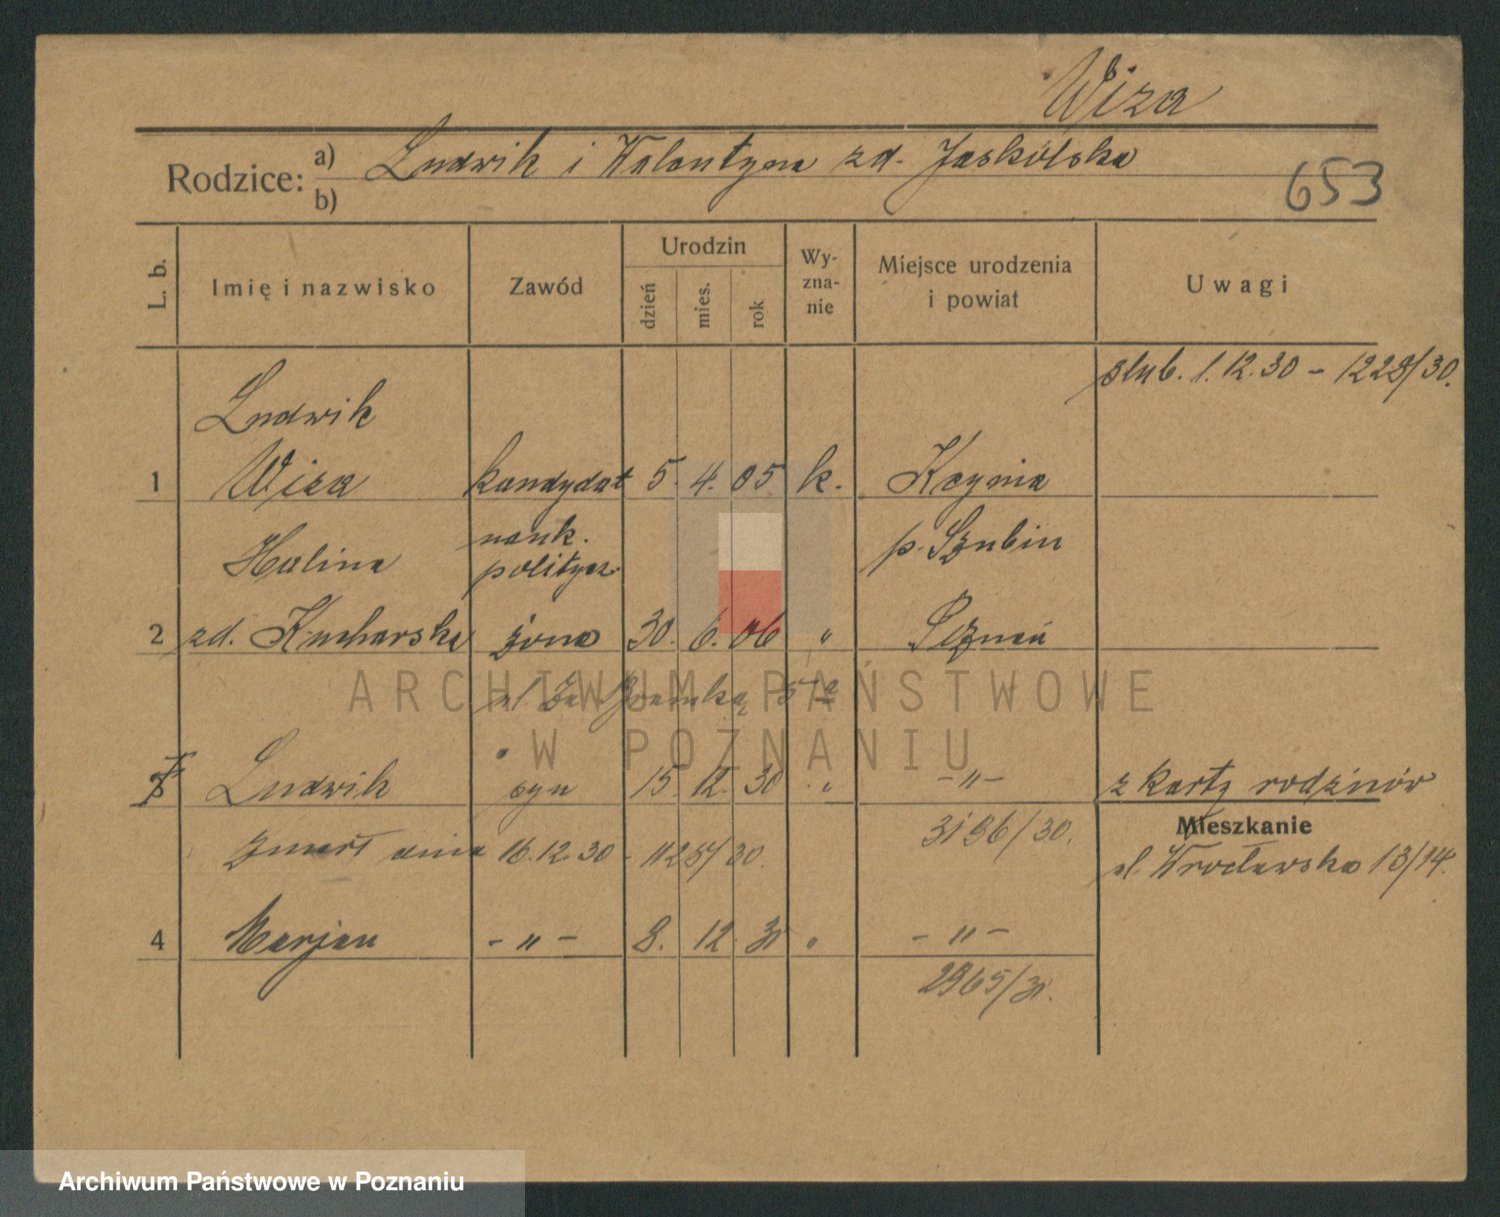 Wiza
Rodzice: a) Ludwik i Walentyna zd. Jaskólska
b)
653
L. b.
Imię i nazwisko
Zawód
Urodzin
dzień
mies.
rok
Wy-
zna-
nie
Miejsce urodzenia
i powiat
Uwagi
ślub. 1.12.30 - 1229/30.
Ludwik
1 Wiza kandydat 5. 4. 05 k. Kcynia
nauk.
politycz.
p. Szubin
Halina
2 zd. Kucharska żona 30. 6. 06 „ Poznań
ul. Za Bramką 5a
3 Ludwik syn 15. 12. 30 „ -„- z karty rodziców
3196/30.
Mieszkanie
zmarł dnia 16.12.30 - 1125/30.
ul. Wrocławska 13/14.
4 Marjan -„- 8. 12. 31 „ -„-
2965/31.
ARCHIWUM PAŃSTWOWE
W POZNANIU
Archiwum Państwowe w Poznaniu